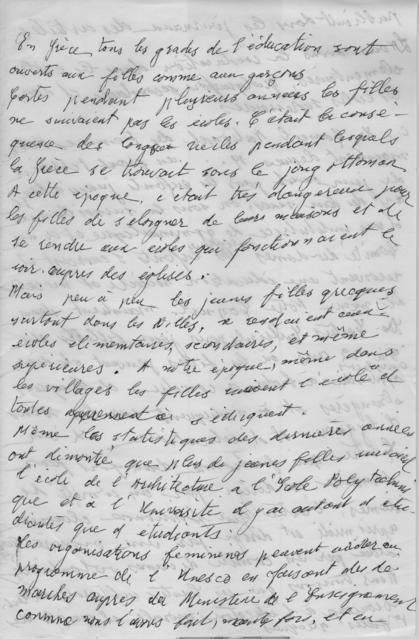 En Grèce tous les grades de l'éducation sont
ouverts aux filles comme aux garçons
Certes pendant plusieurs années les filles
ne suivaient pas les écoles. C'était la consé-
quence des longs siècles pendant lesquels
la Grèce se trouvait sous le joug ottoman
A cette époque, c'était très dangereux pour
les filles de s'éloigner de leurs maisons et de
se rendre aux écoles qui fonctionnaient le
soir, auprès des églises.
Mais peu à peu les jeunes filles grecques
surtout dans les villes, se rendaient aux
écoles élémentaires, secondaires, et même
supérieures. A notre époque, même dans
les villages les filles suivent l'école et
toutes apprennent à s'éduquent.
Même les statistiques des dernières années
ont démontré que plus de jeunes filles suivent
l'école de l'Architecture à l'Ecole Polytechni
que et à l'Université il y a autant d'étu
diantes que d'étudiants.
Les organisations féminines peuvent aider au
programme de l'Unesco en faisant des dé
marches auprès du Ministère de l'Enseignement
comme nous l'avons fait, maintes fois, et en